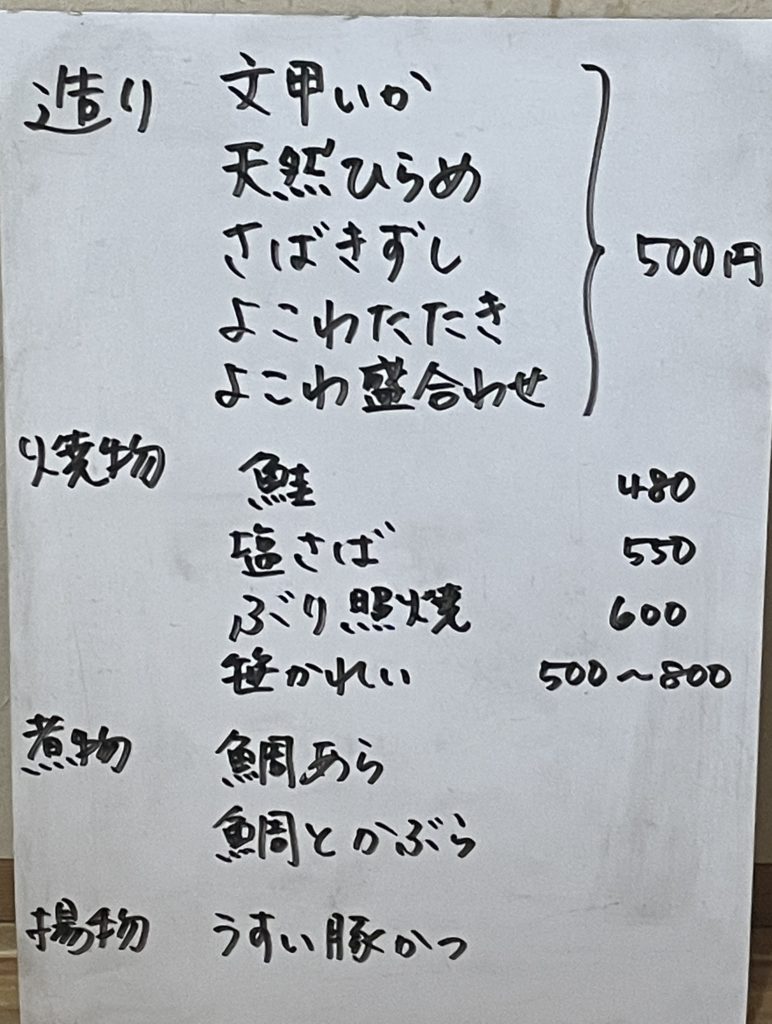 造り 文甲いか
天然ひらめ
さばきずし 500円
よこわたたき
よこわ盛合わせ
焼物 鮭 480
塩さば 550
ぶり照焼 600
笹かれい 500〜800
煮物 鯛あら
鯛とかぶら
揚物 うすい豚かつ